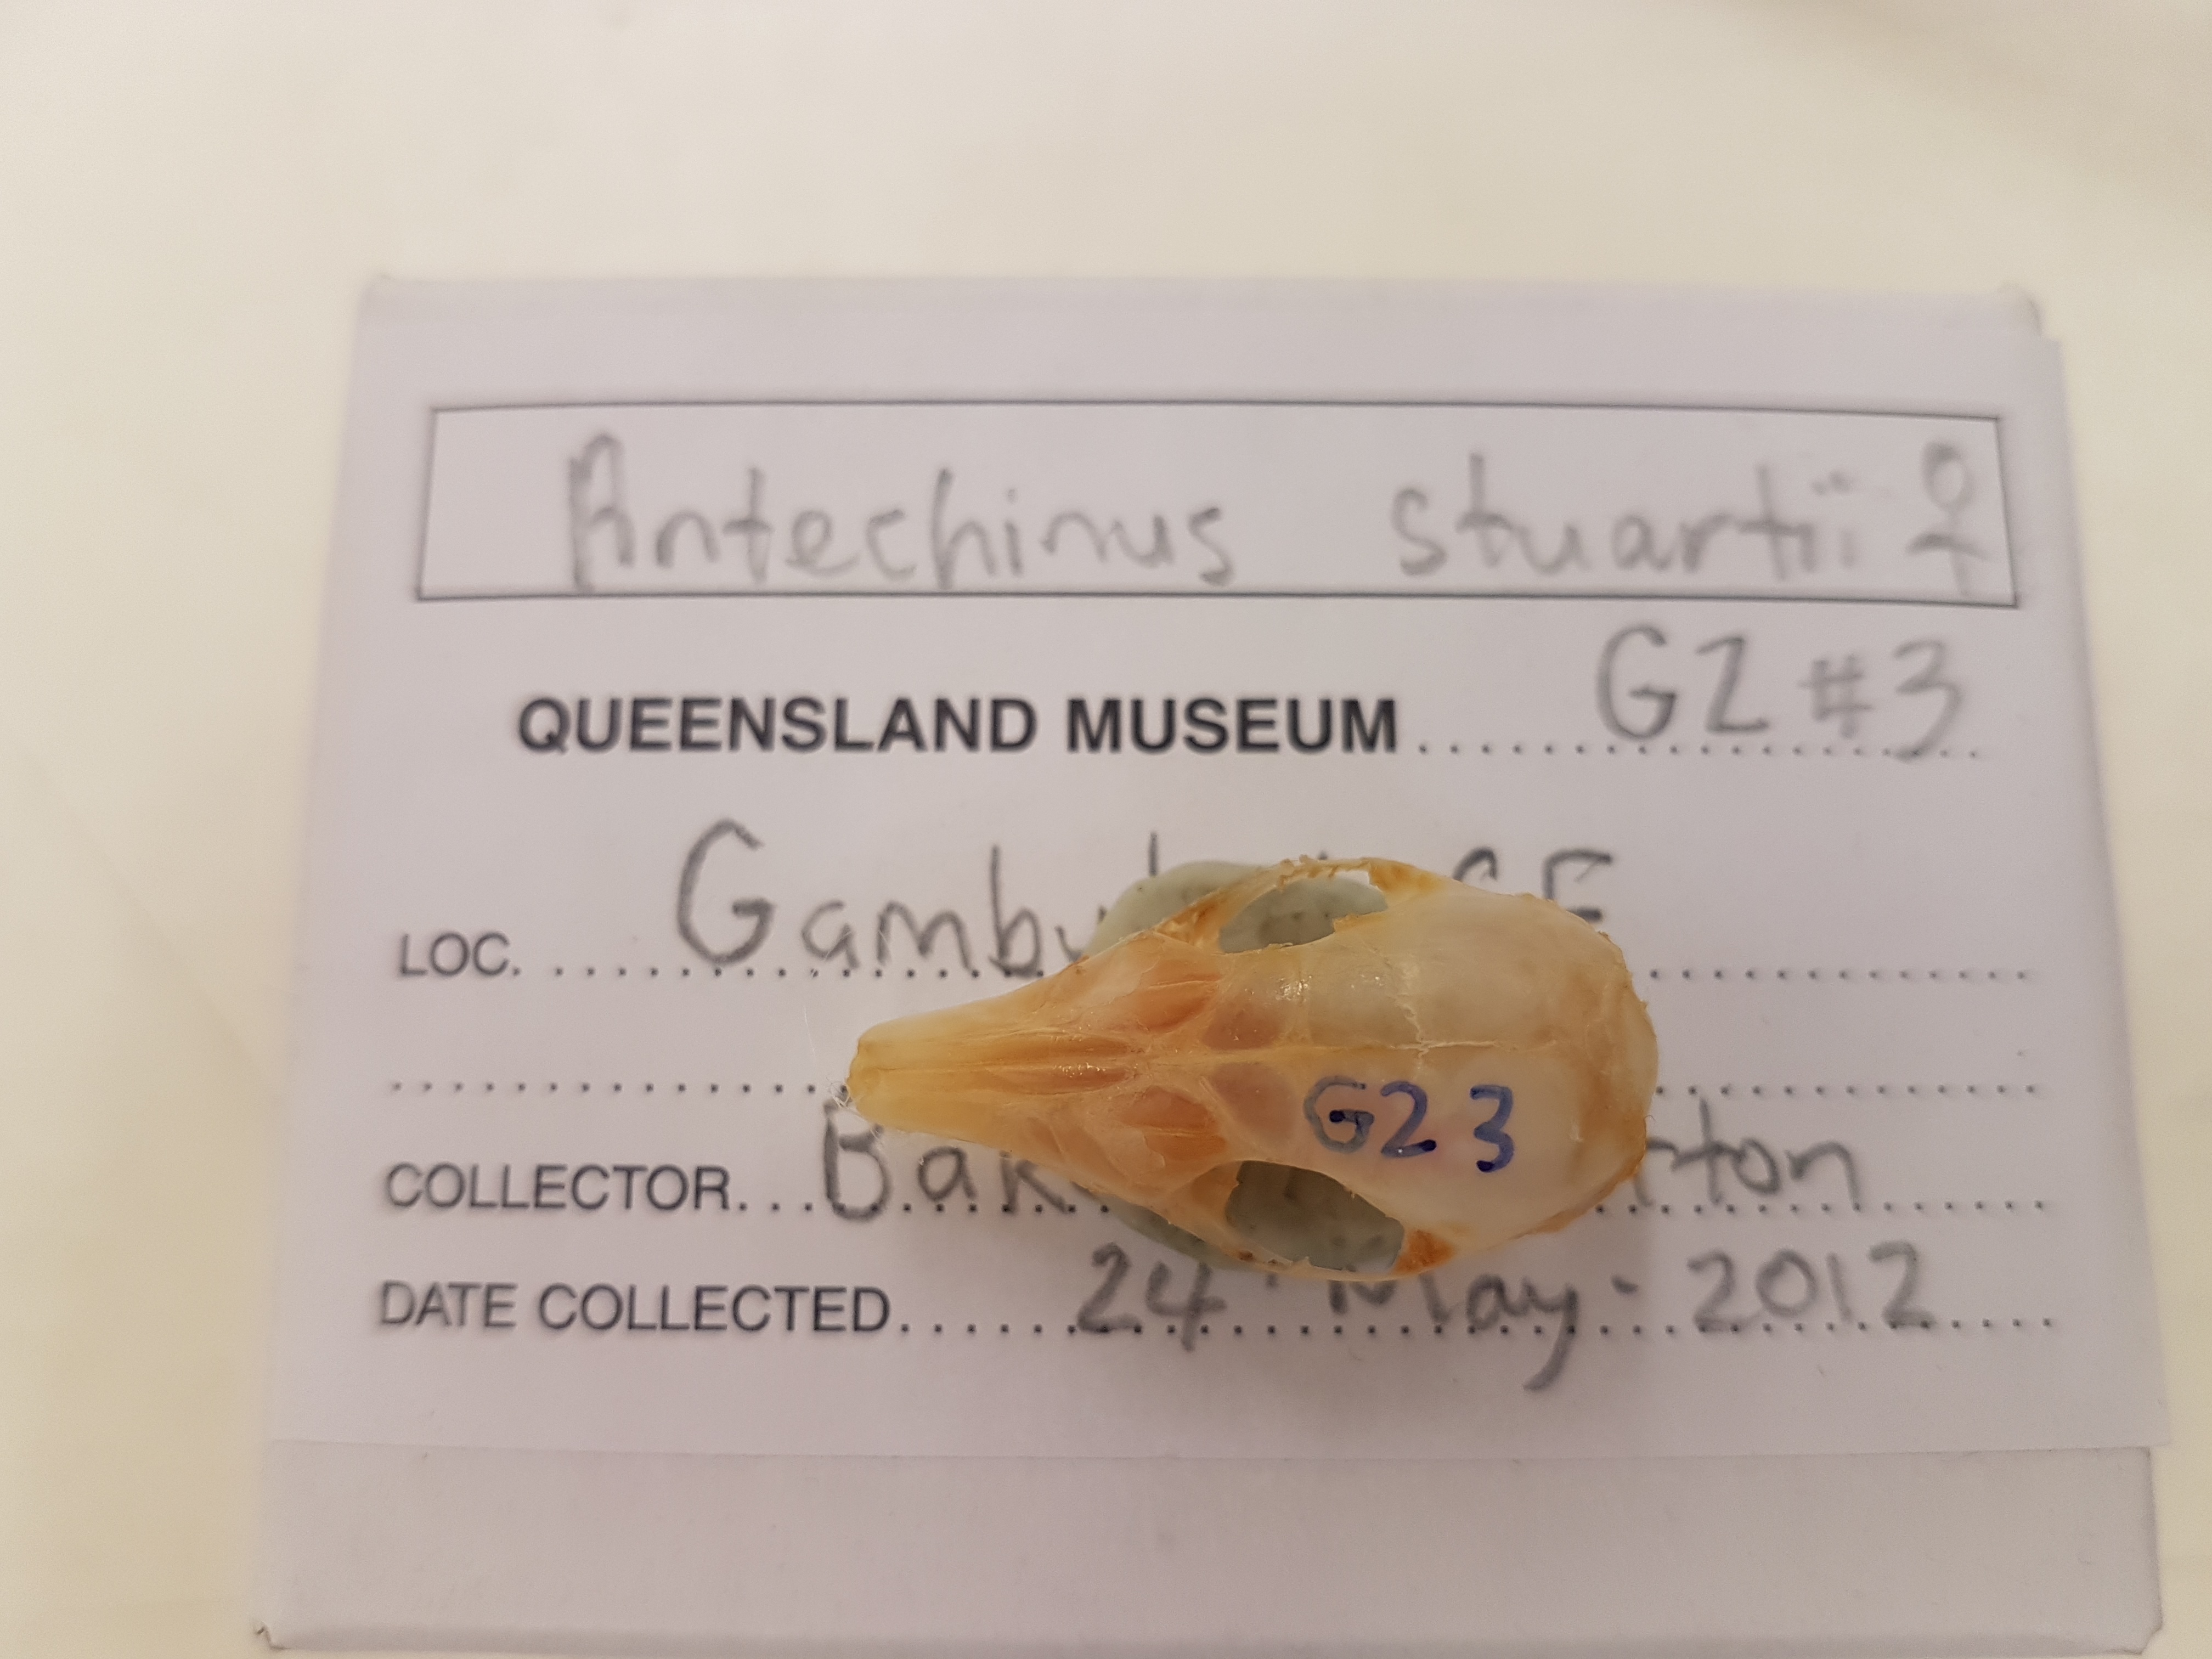 Antechinus stuartii ♀
QUEENSLAND MUSEUM G2 #3
LOC. SF
COLLECTOR.
DATE COLLECTED. 24 May 2012
G2 3